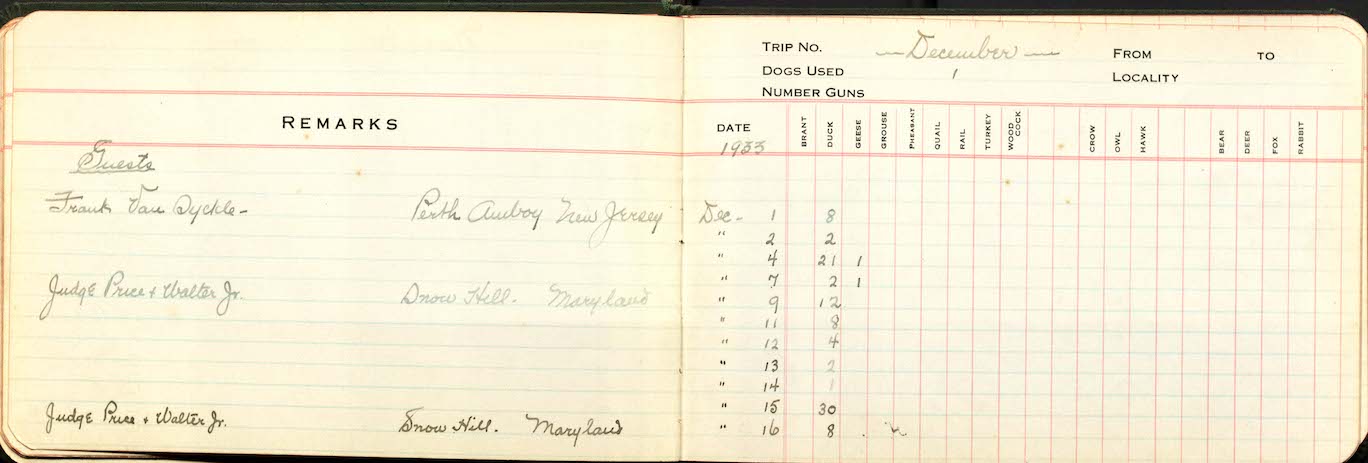 REMARKS
Guests
Frank Van Syckle - Perth Amboy New Jersey
Judge Price + Walter Jr. Snow Hill. Maryland
Judge Price + Walter Jr. Snow Hill. Maryland
TRIP NO. — December — FROM TO
DOGS USED LOCALITY
NUMBER GUNS
DATE BRANT DUCK GEESE GROUSE PHEASANT QUAIL RAIL TURKEY WOOD COCK CROW OWL HAWK BEAR DEER FOX RABBIT
1933
Dec - 1 8
" 2 2
" 4 21 1
" 7 2 1
" 9 12
" 11 8
" 12 4
" 13 2
" 14 1
" 15 30
" 16 8